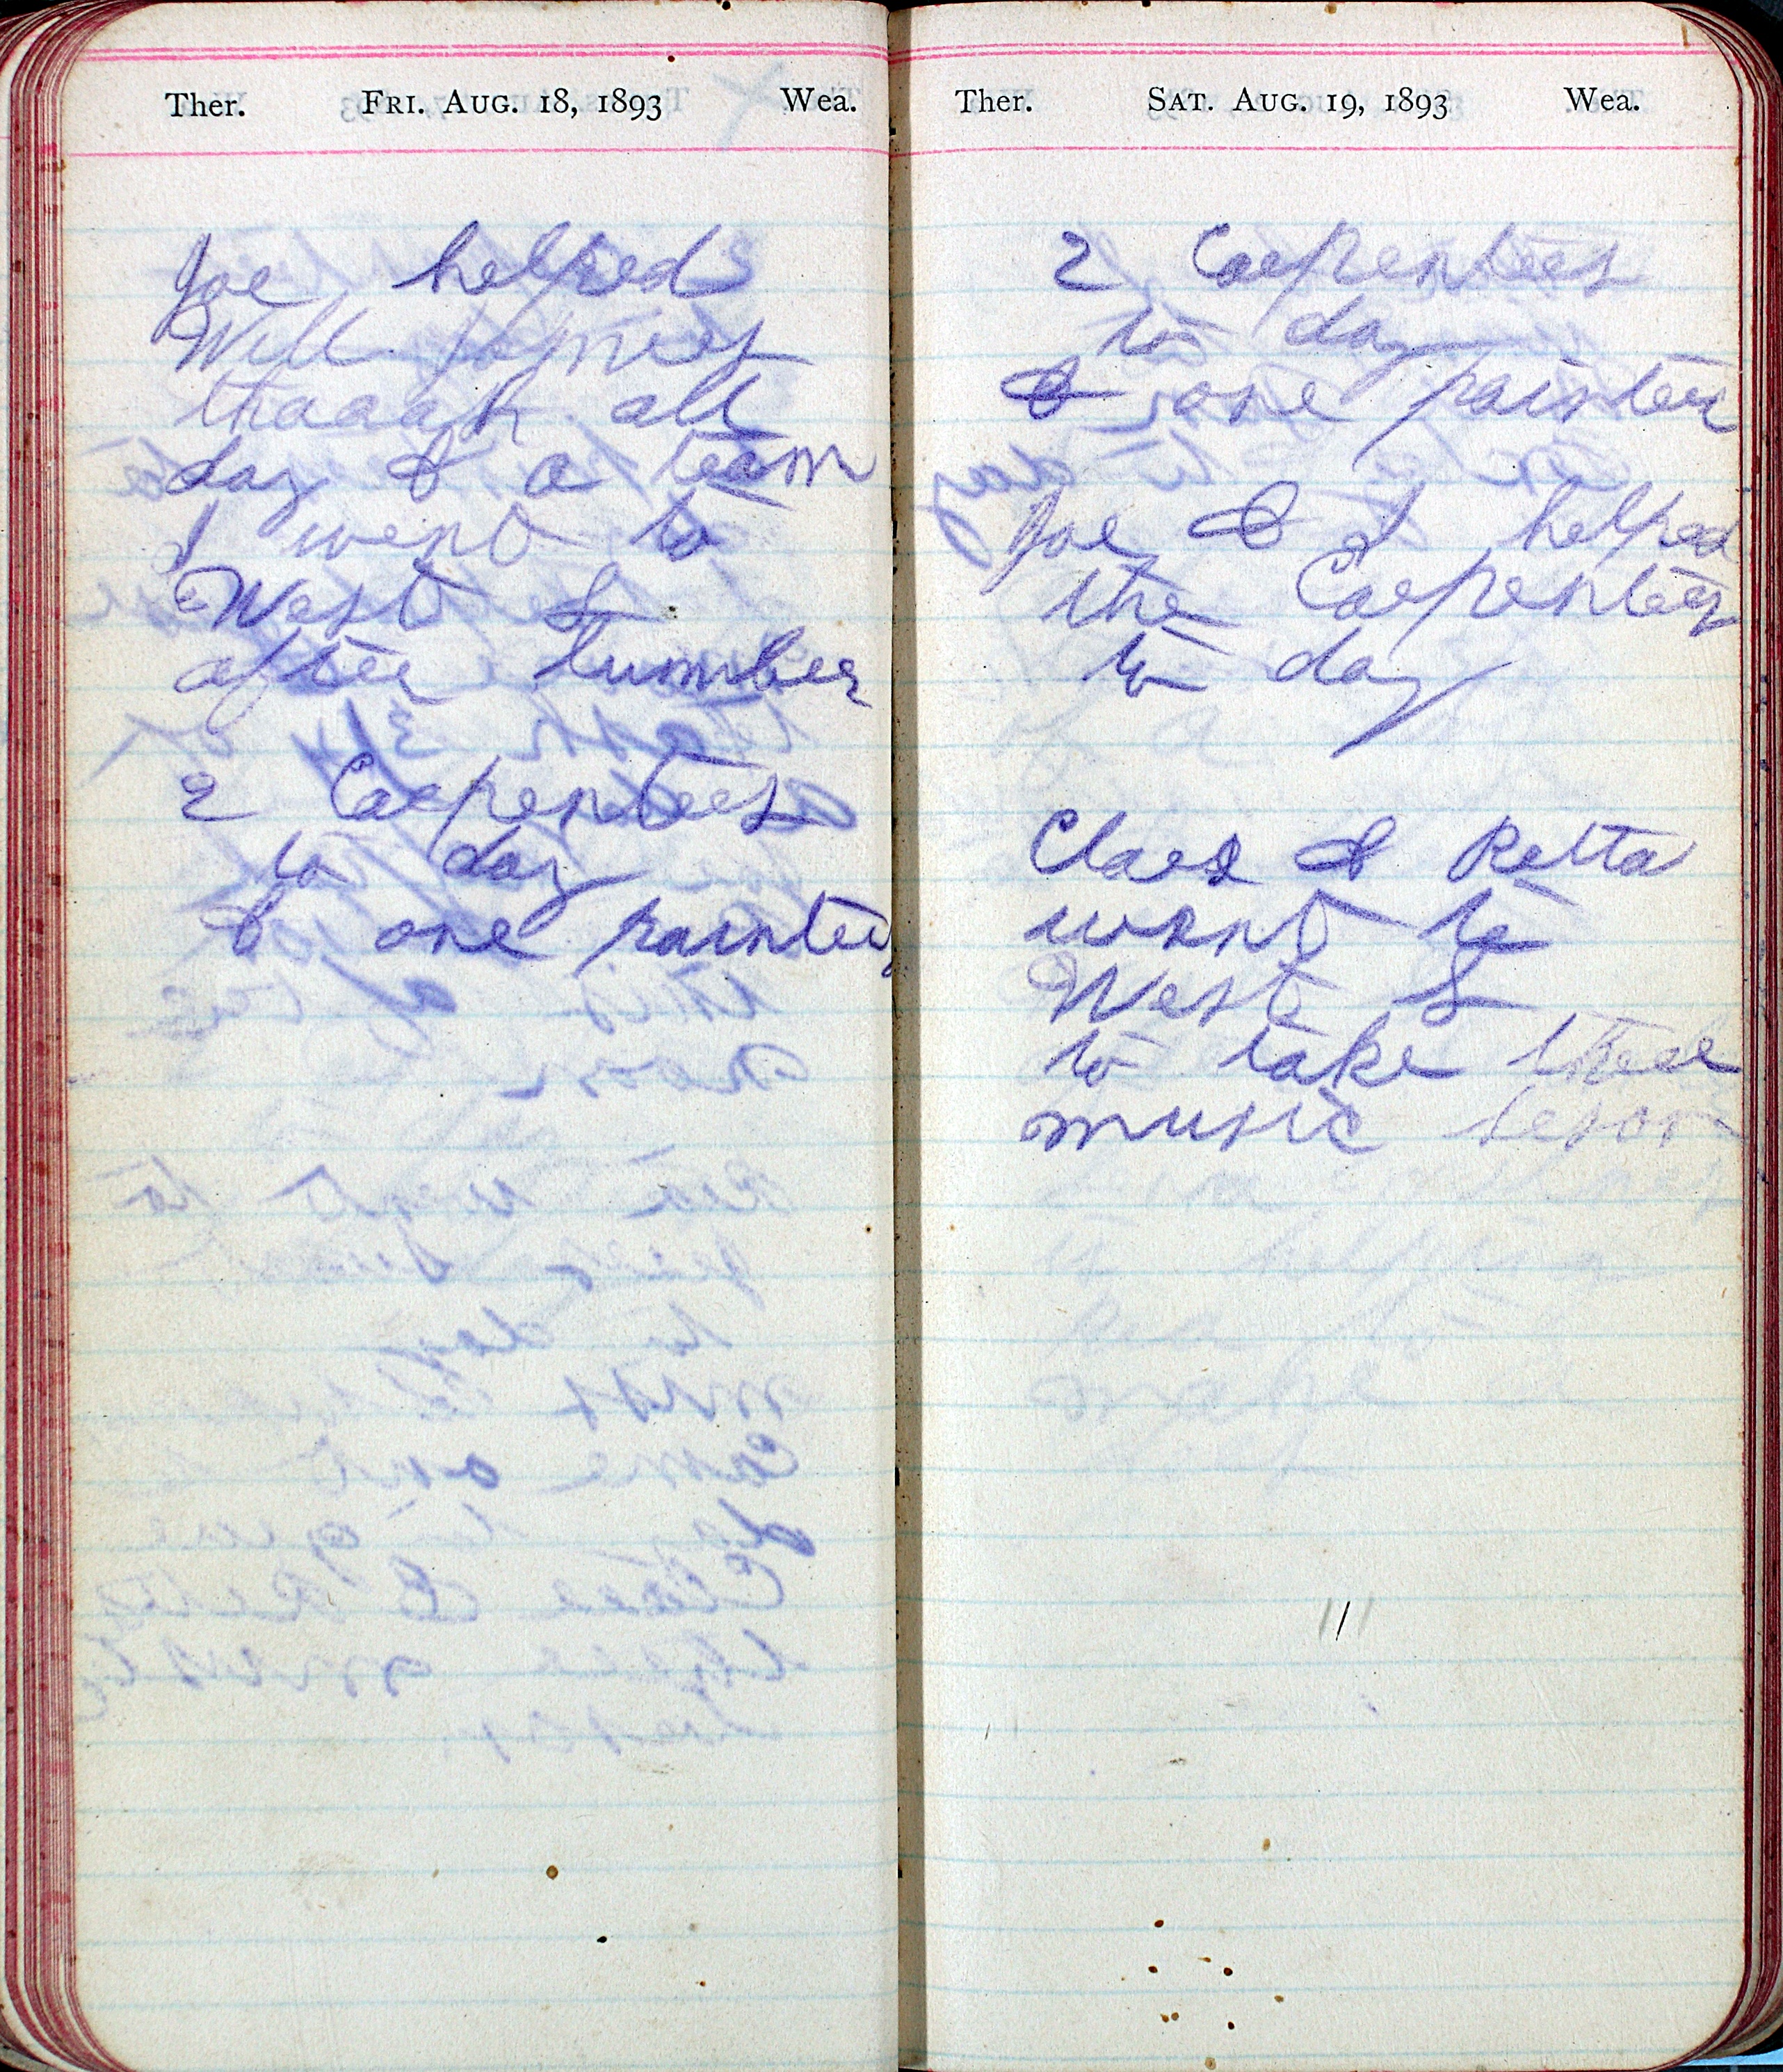 Ther. FRI. AUG. 18, 1893 Wea.
Joe helped
Will
thaash all
day & a team
I went to
West L
after lumber
2 Carpenters
to day
& one painter
Ther. SAT. AUG. 19, 1893 Wea.
2 Carpenters
to day
& one painter
Joe & I helped
the Carpenters
to day
Claer & Retta
want to
West L
to take thear
music leson